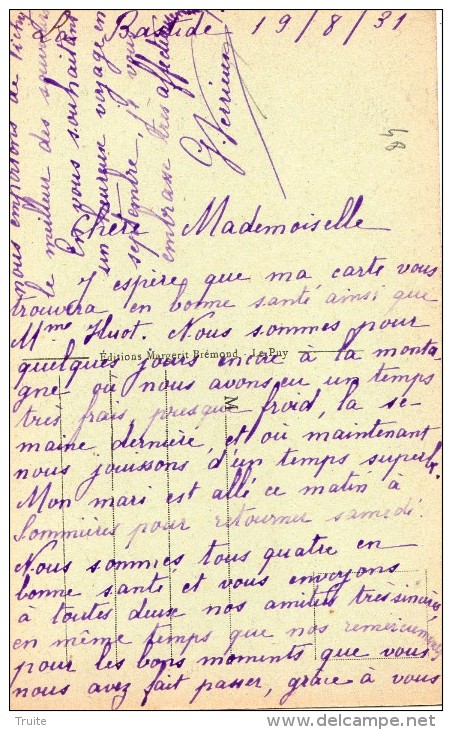 La Bastide 19/8/31
Chère Mademoiselle
J'espère que ma carte vous
trouvera en bonne santé ainsi que
Mme Huot. Nous sommes pour
Éditions Margerit Brémond - Le Puy
quelques jours encore à la monta
gne où nous avons eu un temps
très frais, presque froid, la se-
maine dernière, et où maintenant
nous jouissons d'un temps superbe.
Mon mari est allé ce matin à
Sommières pour retourner samedi.
Nous sommes tous quatre en
bonne santé et vous envoyons
à toutes deux nos amitiés très sincères,
en même temps que nos remerciements
pour les bons moments que vous
nous avez fait passer, grâce à vous
nous emportons de Vichy
le meilleur des souvenirs
En vous souhaitant
un heureux voyage en
septembre, je vous
embrasse très affectueusement
G. Verrieux
48
M
Truite
www.delcampe.net